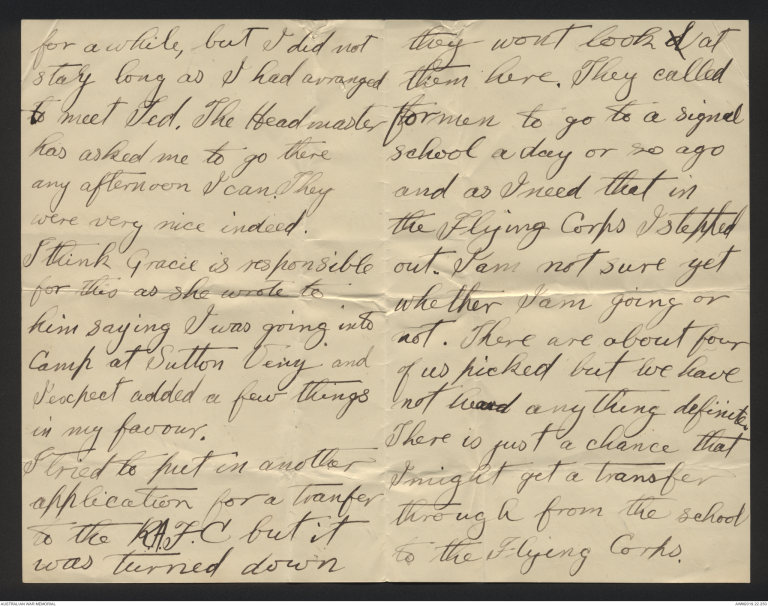 for a while, but I did not
stay long as I had arranged
to meet Ted. The Headmaster
has asked me to go there
any afternoon I can. They
were very nice indeed.
I think Gracie is responsible
for this as she wrote to
him saying I was going into
Camp at Sutton Veny and
I expect added a few things
in my favour.
I tried to put in another
application for a tranfer
to the R.A.F.C but it
was turned down
they wont look at
them here. They called
for men to go to a signal
school a day or so ago
and as I need that in
the Flying Corps I stepped
out. I am not sure yet
whether I am going or
not. There are about four
of us picked but we have
not heard anything definite.
There is just a chance that
I might get a transfer
through from the school
to the Flying Corps.
AUSTRALIAN WAR MEMORIAL